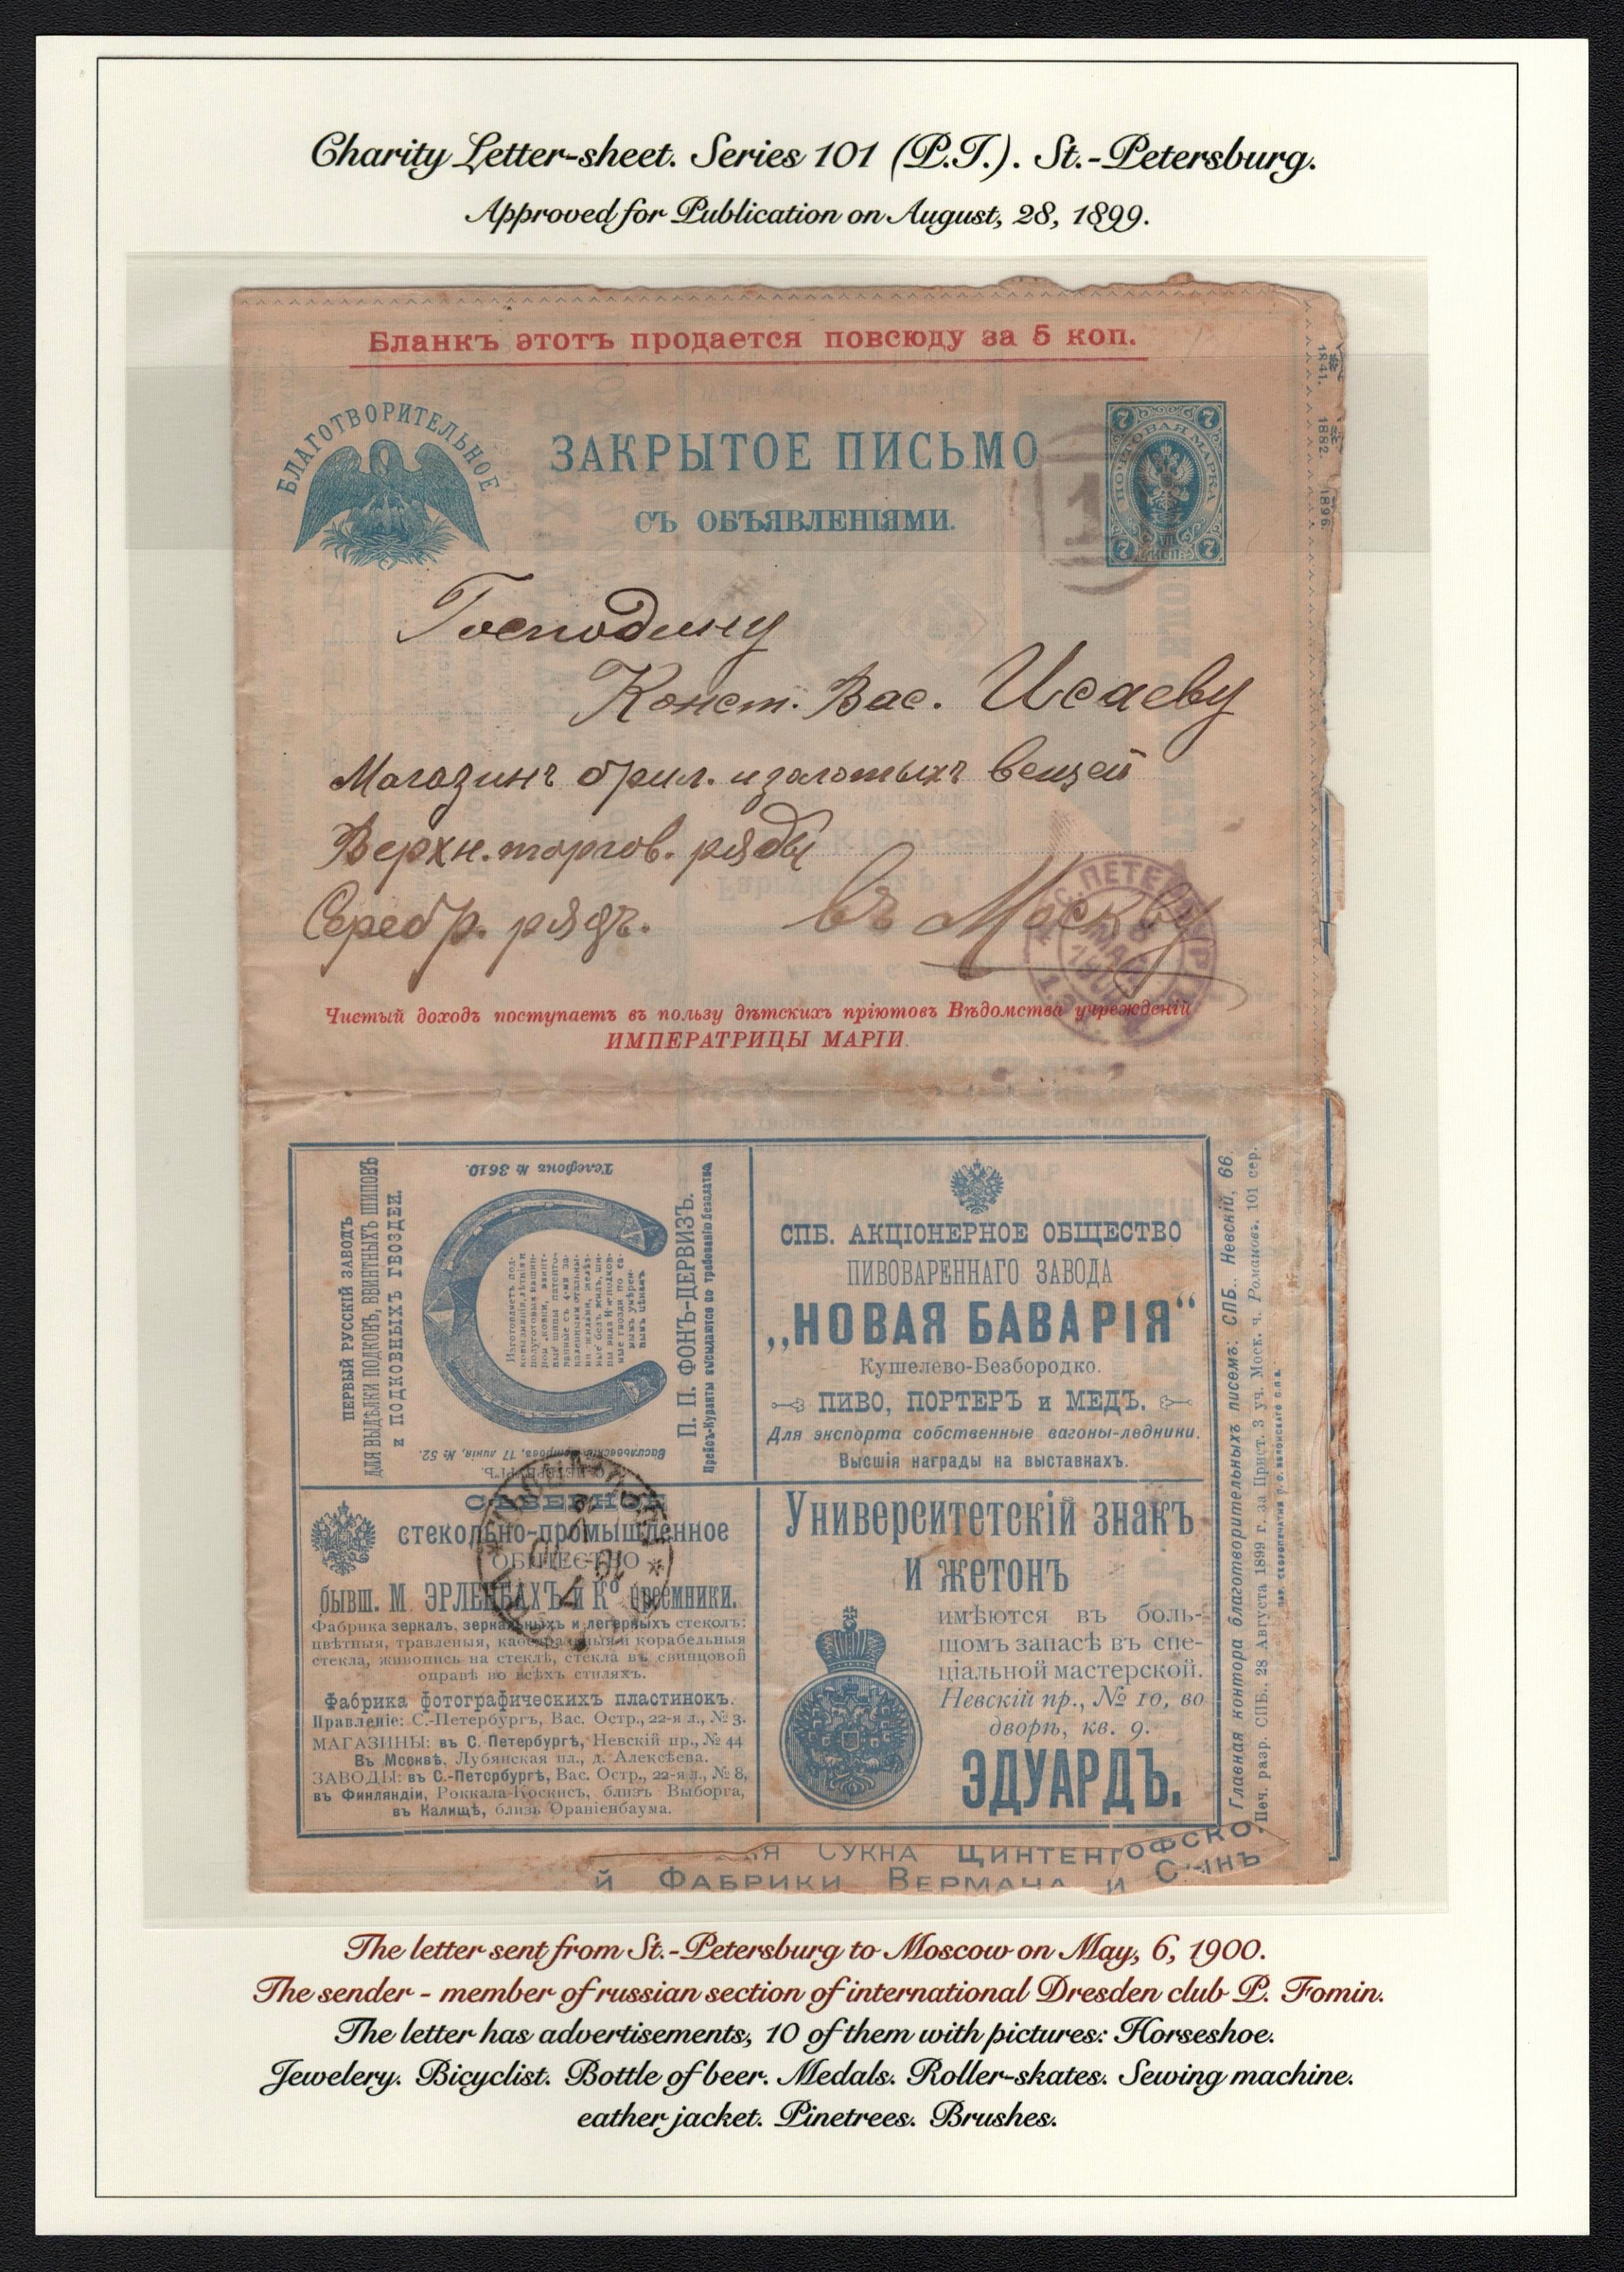 Charity Letter-sheet. Series 101 (P.T.). St.-Petersburg.
Approved for Publication on August, 28, 1899.
Бланкъ этотъ продается повсюду за 5 коп.
БЛАГОТВОРИТЕЛЬНОЕ
ЗАКРЫТОЕ ПИСЬМО
СЪ ОБЪЯВЛЕНІЯМИ.
7 7
ПОЧТОВАЯ МАРКА
7 7
1
1841. 1882. 1896.
Господину
Конст. Вас. Исаеву
Магазинъ брил. и золотыхъ вещей
Верхн. торгов. ряды
Серебр. рядъ. въ Москву
С.ПЕТЕРБУРГ
6
МАЯ
1900
Чистый доходъ поступаетъ въ пользу дѣтскихъ пріютовъ Вѣдомства учрежденій
ИМПЕРАТРИЦЫ МАРІИ.
ПЕРВЫЙ РУССКІЙ ЗАВОДЪ
ДЛЯ ВЫДѢЛКИ ПОДКОВЪ, ВВИНТНЫХЪ ШИПОВЪ
и ПОДКОВНЫХЪ ГВОЗДЕЙ.
Телефонъ № 3610.
П. П. ФОНЪ-ДЕРВИЗЪ.
Прейсъ-Куранты высылаются по требованію безплатно
Васильевскій Островъ, 17 линія, № 52.
С.-ПЕТЕРБУРГЪ.
СПБ. АКЦІОНЕРНОЕ ОБЩЕСТВО
ПИВОВАРЕННАГО ЗАВОДА
„НОВАЯ БАВАРІЯ“
Кушелево-Безбородко.
ПИВО, ПОРТЕРЪ и МЕДЪ.
Для экспорта собственные вагоны-ледники.
Высшія награды на выставкахъ.
СѢВЕРНОЕ
стекольно-промышленное
ОБЩЕСТВО
бывш. М. ЭРЛЕНБАХЪ и Ко преемники.
Фабрика зеркалъ, зеркальныхъ и легерныхъ стеколъ:
цвѣтныя, травленыя, каѳедральныя и корабельныя
стекла, живопись на стеклѣ, стекла въ свинцовой
оправѣ во всѣхъ стиляхъ.
Фабрика фотографическихъ пластинокъ.
Правленіе: С.-Петербургъ, Вас. Остр., 22-я л., № 3.
МАГАЗИНЫ: въ С. Петербургѣ, Невскій пр., № 44
Въ Москвѣ, Лубянская пл., д. Алексѣева.
ЗАВОДЫ: въ С.-Петербургѣ, Вас. Остр., 22-я л., № 8,
въ Финляндіи, Роккала-Коскисъ, близъ Выборга,
въ Калищѣ, близъ Ораніенбаума.
Университетскій знакъ
и жетонъ
имѣются въ боль-
шомъ запасѣ въ спе-
ціальной мастерской.
Невскій пр., № 10, во
дворѣ, кв. 9.
ЭДУАРДЪ.
Главная контора благотворительныхъ писемъ: СПБ., Невскій, 66.
Печ. разр. СПБ., 28 Августа 1899 г. за Прист. 3 уч. Моск. ч. Романовъ. 101 сер.
Я СУКНА ЦИНТЕНГОФСКО
Й ФАБРИКИ ВЕРМАНА И СЫНЪ
The letter sent from St.-Petersburg to Moscow on May, 6, 1900.
The sender - member of russian section of international Dresden club P. Fomin.
The letter has advertisements, 10 of them with pictures: Horseshoe.
Jewelery. Bicyclist. Bottle of beer. Medals. Roller-skates. Sewing machine.
eather jacket. Pinetrees. Brushes.